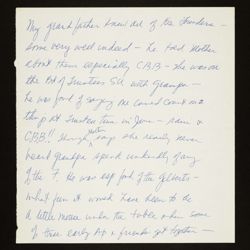 My grandfather knew all of the Founders -
some very well indeed - he told Mother
about them especially C.B.B. - she was on
the Bd of Trustees SU with Grandpa -
he was fond of saying no one could count on a
thing at Founders time in June - rain &
C.B.B!! Though Mother says she really never
heard Grandpa speak unkindly of any
of the 7. He was esp fond of the Gilberts -
what fun it would have been to be
a little mouse under the table when some
of those early AΦ & friends got together -